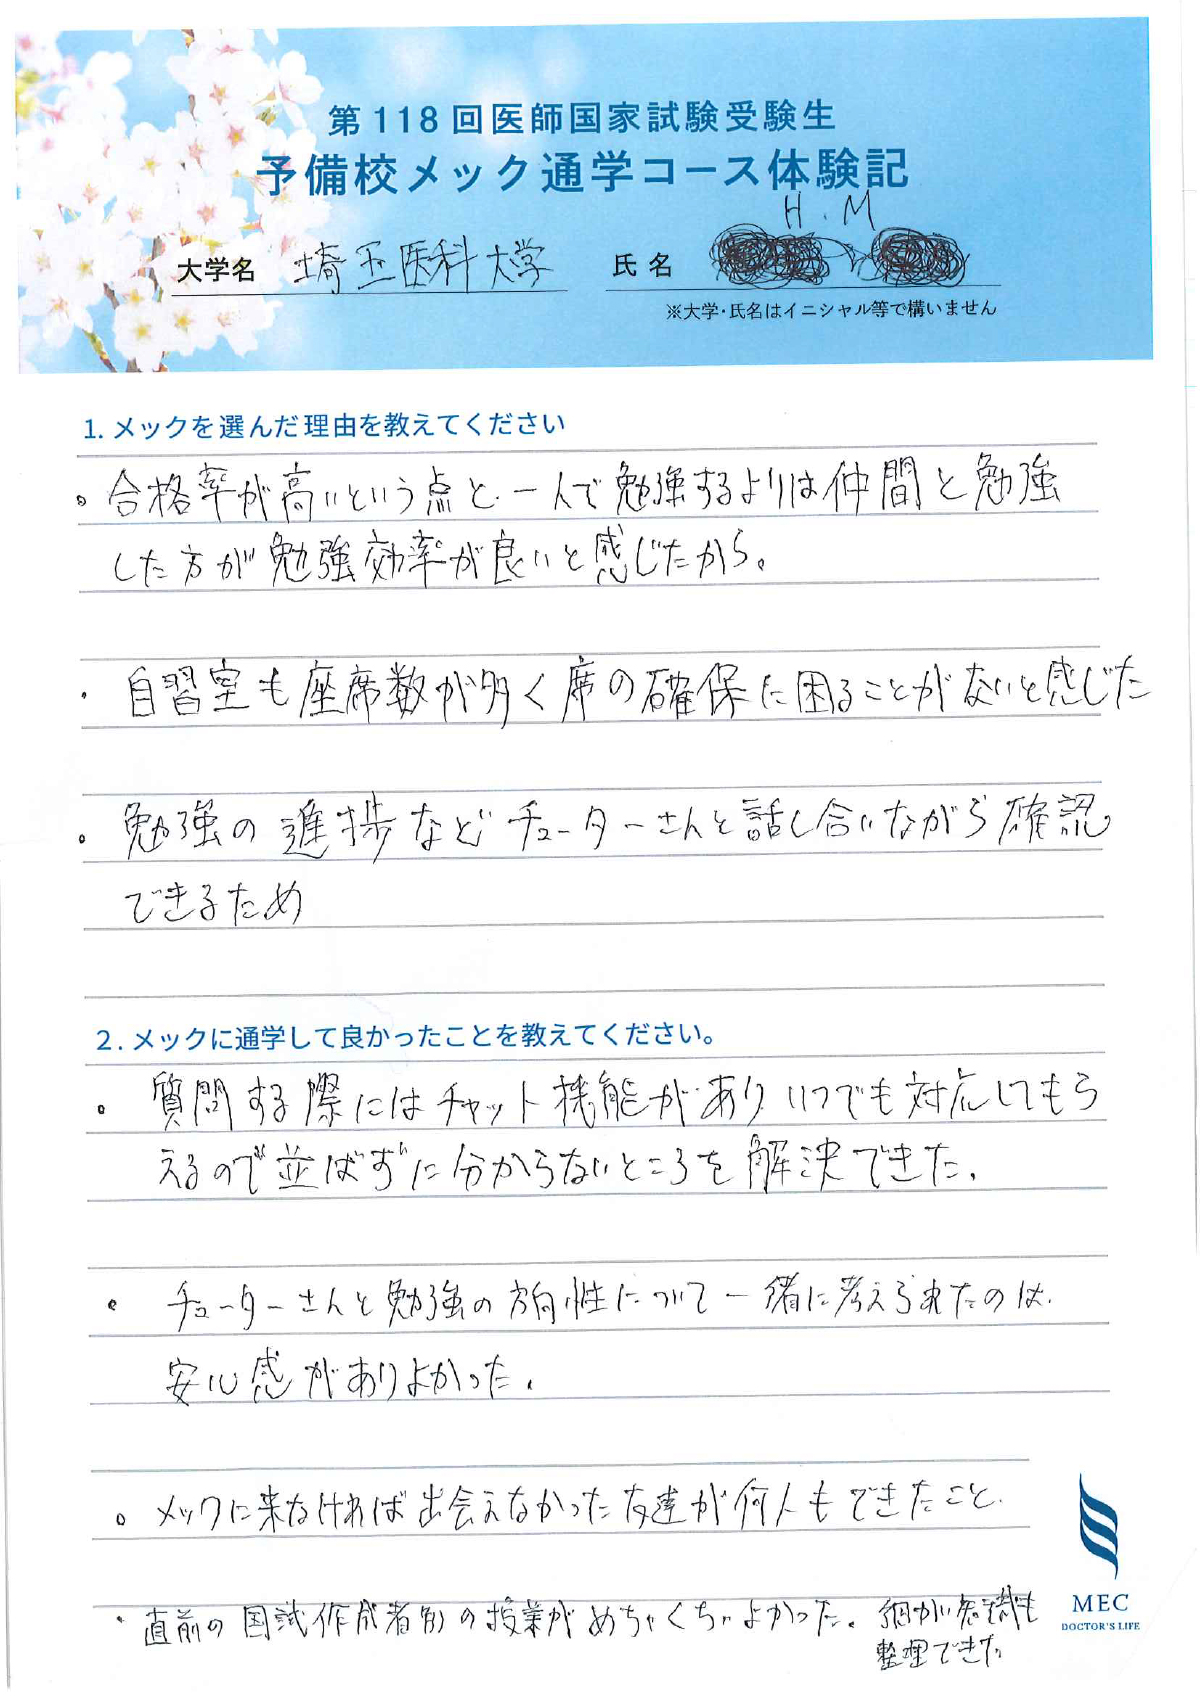 第118回医師国家試験受験生
予備校メック通学コース体験記
H.M
大学名 埼玉医科大学 氏名
※大学・氏名はイニシャル等で構いません
1. メックを選んだ理由を教えてください
。合格率が高いという点と、一人で勉強するよりは仲間と勉強
した方が勉強効率が良いと感じたから。
・自習室も座席数が多く席の確保に困ることがないと感じた
。勉強の進捗などチューターさんと話し合いながら確認
できるため
2. メックに通学して良かったことを教えてください。
。質問する際にはチャット機能があり、いつでも対応してもら
えるので並ばずに分からないところを解決できた。
。チューターさんと勉強の方向性について一緒に考えられたのは、
安心感がありよかった。
。メックに来なければ出会えなかった友達が何人もできたこと。
・直前の国試作成者別の授業がめちゃくちゃよかった。細かい知識も
整理できた
MEC
DOCTOR'S LIFE